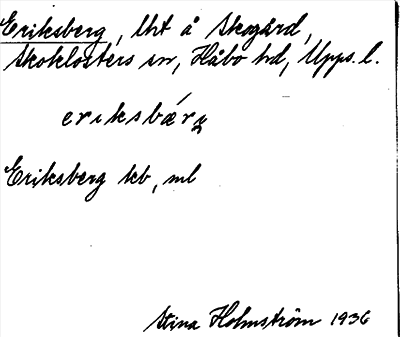 Eriksberg, lht å Skogård,
Skoklosters sn, Håbo hd, Upps. l.
eriksbǽrɡ
Eriksberg kb, ml
Stina Holmström 1936